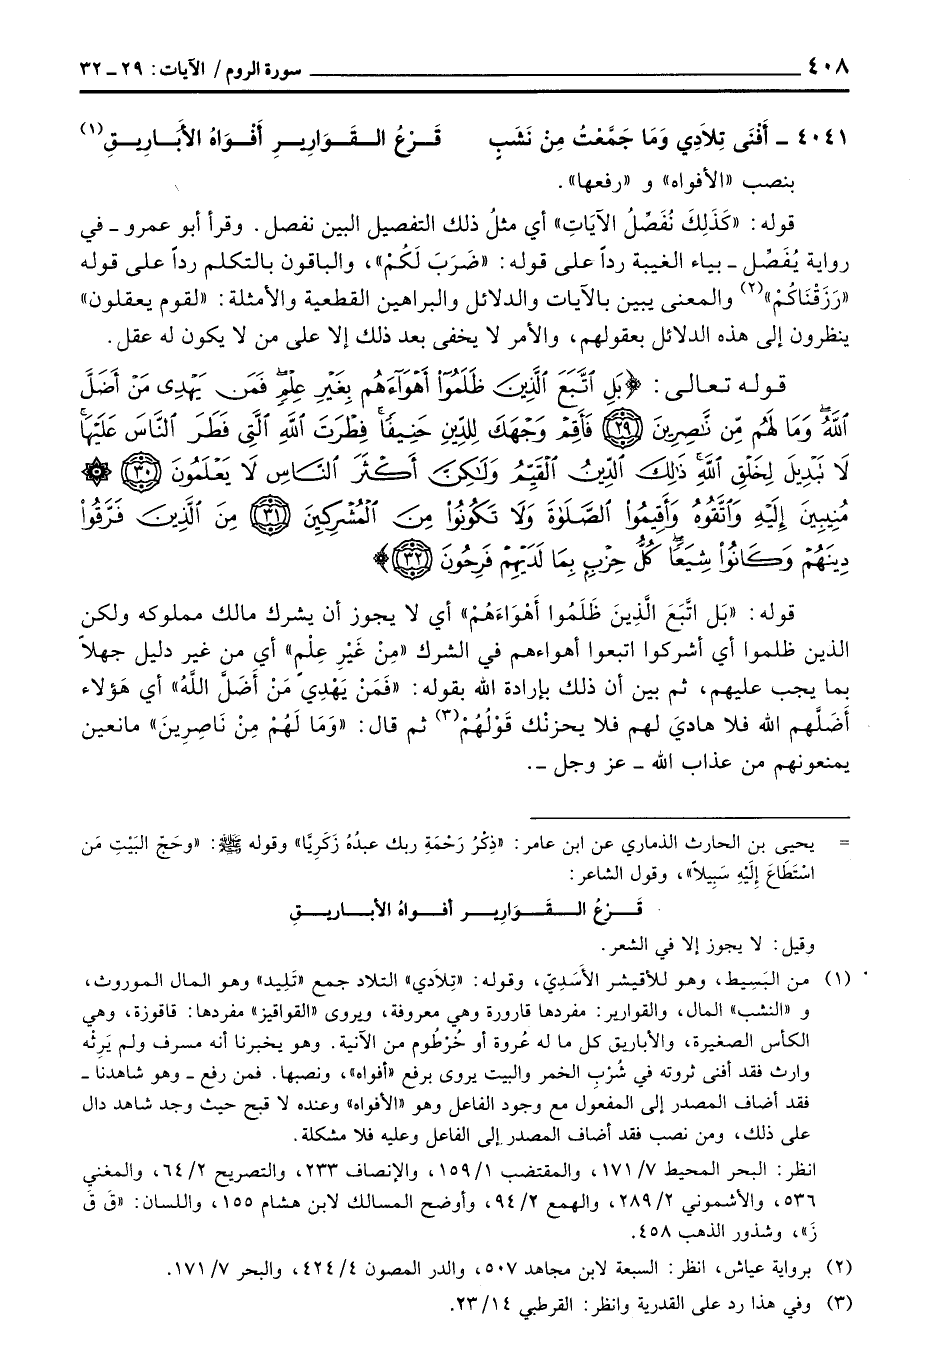 ٤٠٨ سورة الروم / الآيات: ٢٩ ـ ٣٢
٤٠٤١ ـ أَفْنَى تِلاَدِي وَمَا جَمَّعْتُ مِنْ نَشَبٍ قَرْعُ القَوَارِيرِ أَفْوَاهُ الأَبَارِيقِ(١)
بنصب «الأفواه» و «رفعها».
قوله: «كَذَلِكَ نُفَصِّلُ الآيَاتِ» أي مثلُ ذلك التفصيل البين نفصل. وقرأ أبو عمرو ـ في
رواية يُفَصِّل ـ بياء الغيبة رداً على قوله: «ضَرَبَ لَكُمْ»، والباقون بالتكلم رداً على قوله
«رَزَقْنَاكُمْ»(٢) والمعنى يبين بالآيات والدلائل والبراهين القطعية والأمثلة: «لقوم يعقلون»
ينظرون إلى هذه الدلائل بعقولهم، والأمر لا يخفى بعد ذلك إلا على من لا يكون له عقل.
قوله تعالى: ﴿بَلِ ٱتَّبَعَ ٱلَّذِينَ ظَلَمُوٓا۟ أَهْوَآءَهُم بِغَيْرِ عِلْمٍۖ فَمَن يَهْدِى مَنْ أَضَلَّ
ٱللَّهُۖ وَمَا لَهُم مِّن نَّٰصِرِينَ ٢٩ فَأَقِمْ وَجْهَكَ لِلدِّينِ حَنِيفًاۚ فِطْرَتَ ٱللَّهِ ٱلَّتِى فَطَرَ ٱلنَّاسَ عَلَيْهَاۚ
لَا تَبْدِيلَ لِخَلْقِ ٱللَّهِۚ ذَٰلِكَ ٱلدِّينُ ٱلْقَيِّمُ وَلَٰكِنَّ أَكْثَرَ ٱلنَّاسِ لَا يَعْلَمُونَ ٣٠ ۞
مُنِيبِينَ إِلَيْهِ وَٱتَّقُوهُ وَأَقِيمُوا۟ ٱلصَّلَوٰةَ وَلَا تَكُونُوا۟ مِنَ ٱلْمُشْرِكِينَ ٣١ مِنَ ٱلَّذِينَ فَرَّقُوا۟
دِينَهُمْ وَكَانُوا۟ شِيَعًاۖ كُلُّ حِزْبٍۭ بِمَا لَدَيْهِمْ فَرِحُونَ ٣٢﴾
قوله: «بَل اتَّبَعَ الَّذِينَ ظَلَمُوا أَهْوَاءَهُمْ» أي لا يجوز أن يشرك مالك مملوكه ولكن
الذين ظلموا أي أشركوا اتبعوا أهواءهم في الشرك «مِنْ غَيْرِ عِلْمٍ» أي من غير دليل جهلاً
بما يجب عليهم، ثم بين أن ذلك بإرادة الله بقوله: «فَمَنْ يَهْدِي مَنْ أَضَلَّ اللَّهُ» أي هَؤلاء
أَضَلَّهم الله فلا هاديَ لهم فلا يحزنْك قَوْلُهُمْ(٣) ثم قال: «وَمَا لَهُمْ مِنْ نَاصِرِينَ» مانعين
يمنعونهم من عذاب الله ـ عز وجل ـ.
= يحيى بن الحارث الذماري عن ابن عامر: «ذِكْرُ رَحْمَةِ ربك عبدُهُ زَكَرِيَّا» وقوله ﷺ: «وحَجّ البَيْتِ مَن
اسْتَطَاعَ إِلَيْهِ سَبِيلاً»، وقول الشاعر:
قَرْعُ القَوَارِيرِ أفواهُ الأباريقِ
وقيل: لا يجوز إلا في الشعر.
(١) من البَسِيط، وهو للأقيشر الأَسَدِيّ، وقوله: «تِلاَدي» التلاد جمع «تَلِيد» وهو المال الموروث،
و «النشب» المال، والقوارير: مفردها قارورة وهي معروفة، ويروى «القواقيز» مفردها: قاقوزة، وهي
الكأس الصغيرة، والأباريق كل ما له عُروة أو خُرْطُوم من الآنية. وهو يخبرنا أنه مسرف ولم يَرِثْه
وارث فقد أفنى ثروته في شُرْبِ الخمر والبيت يروى برفع «أفواه»، ونصبها. فمن رفع ـ وهو شاهدنا ـ
فقد أضاف المصدر إلى المفعول مع وجود الفاعل وهو «الأفواه» وعنده لا قبح حيث وجد شاهد دال
على ذلك، ومن نصب فقد أضاف المصدر إلى الفاعل وعليه فلا مشكلة.
انظر: البحر المحيط ٧/ ١٧١، والمقتضب ١/ ١٥٩، والإنصاف ٢٣٣، والتصريح ٢/ ٦٤، والمغني
٥٣٦، والأشموني ٢/ ٢٨٩، والهمع ٢/ ٩٤، وأوضح المسالك لابن هشام ١٥٥، واللسان: «قَ قَ
زَ»، وشذور الذهب ٤٥٨.
(٢) برواية عياش، انظر: السبعة لابن مجاهد ٥٠٧، والدر المصون ٤/ ٤٢٤، والبحر ٧/ ١٧١.
(٣) وفي هذا رد على القدرية وانظر: القرطبي ١٤/ ٢٣.